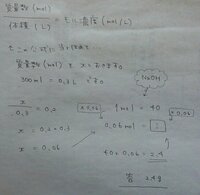 質量数(mol)
体積 (L)
= モル濃度 (mol/L)
この公式に当てはめて…
質量数(mol)を x とおきます。
300ml = 0.3L です。
NaOH
x
0.3
= 0.2
x = 0.2×0.3
x = 0.06
×0.06
1mol = 40
0.06mol = ?
×0.06
40×0.06 = 2.4
答 2.4g